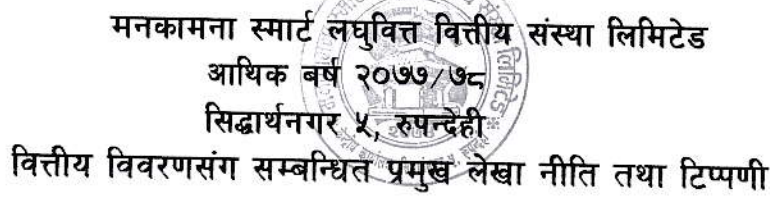 मनकामना स्मार्ट लघुवित्त वित्तीय संस्था लिमिटेड
आथिक बर्ष २०७७/७८
सिद्धार्थनगर ५, रुपन्देही
वित्तीय विवरणसंग सम्बन्धित प्रमुख लेखा नीति तथा टिप्पणी